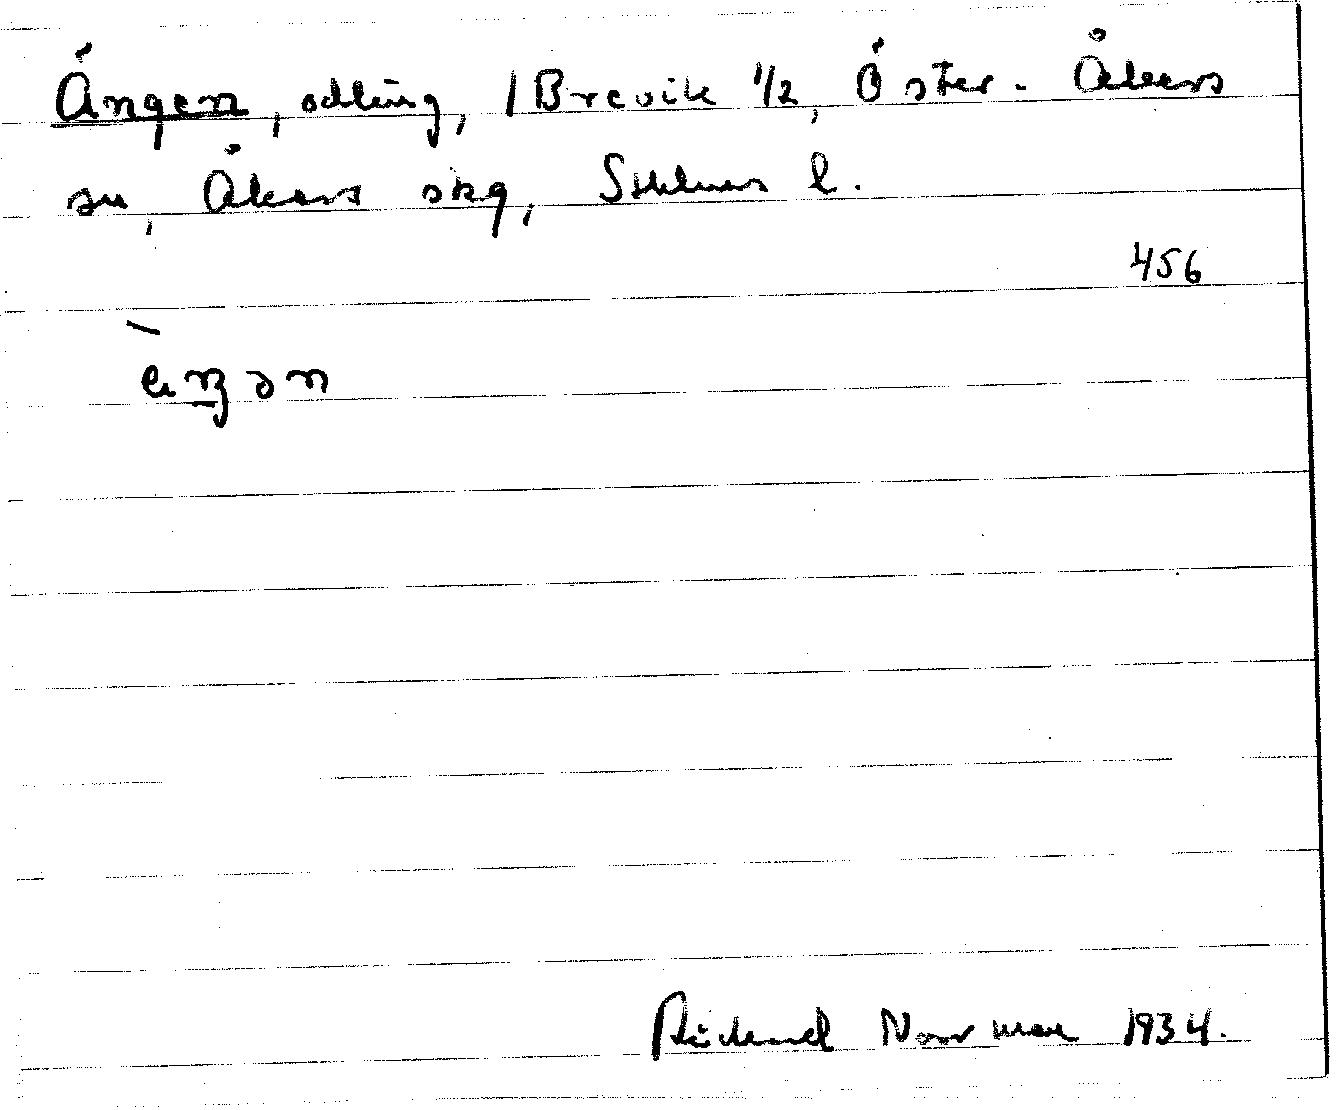 Ängen, odling, /Brevik 1/2, Öster-Åkers
sn, Åkers skg, Sthlms l.
456
Rickard Norrman 1934.